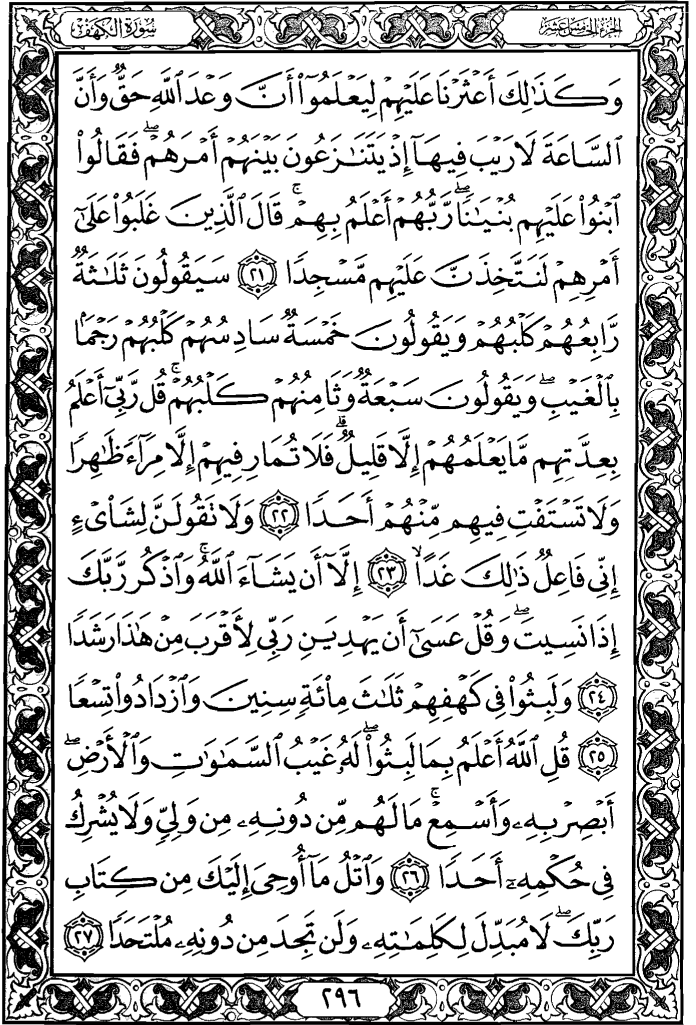 سورة الكهف
الجزء الخامس عشر
وَكَذَٰلِكَ أَعْثَرْنَا عَلَيْهِمْ لِيَعْلَمُوٓا۟ أَنَّ وَعْدَ ٱللَّهِ حَقٌّ وَأَنَّ
ٱلسَّاعَةَ لَا رَيْبَ فِيهَآ إِذْ يَتَنَٰزَعُونَ بَيْنَهُمْ أَمْرَهُمْ ۖ فَقَالُوا۟
ٱبْنُوا۟ عَلَيْهِم بُنْيَٰنًا ۖ رَّبُّهُمْ أَعْلَمُ بِهِمْ ۚ قَالَ ٱلَّذِينَ غَلَبُوا۟ عَلَىٰٓ
أَمْرِهِمْ لَنَتَّخِذَنَّ عَلَيْهِم مَّسْجِدًا ٢١ سَيَقُولُونَ ثَلَٰثَةٌ
رَّابِعُهُمْ كَلْبُهُمْ وَيَقُولُونَ خَمْسَةٌ سَادِسُهُمْ كَلْبُهُمْ رَجْمًۢا
بِٱلْغَيْبِ ۖ وَيَقُولُونَ سَبْعَةٌ وَثَامِنُهُمْ كَلْبُهُمْ ۚ قُل رَّبِّىٓ أَعْلَمُ
بِعِدَّتِهِم مَّا يَعْلَمُهُمْ إِلَّا قَلِيلٌ ۗ فَلَا تُمَارِ فِيهِمْ إِلَّا مِرَآءً ظَٰهِرًا
وَلَا تَسْتَفْتِ فِيهِم مِّنْهُمْ أَحَدًا ٢٢ وَلَا تَقُولَنَّ لِشَا۟ىْءٍ
إِنِّى فَاعِلٌ ذَٰلِكَ غَدًا ۙ ٢٣ إِلَّآ أَن يَشَآءَ ٱللَّهُ ۚ وَٱذْكُر رَّبَّكَ
إِذَا نَسِيتَ ۖ وَقُلْ عَسَىٰٓ أَن يَهْدِيَنِ رَبِّى لِأَقْرَبَ مِنْ هَٰذَا رَشَدًا
٢٤ وَلَبِثُوا۟ فِى كَهْفِهِمْ ثَلَٰثَ مِا۟ئَةٍ سِنِينَ وَٱزْدَادُوا۟ تِسْعًا
٢٥ قُلِ ٱللَّهُ أَعْلَمُ بِمَا لَبِثُوا۟ ۖ لَهُۥ غَيْبُ ٱلسَّمَٰوَٰتِ وَٱلْأَرْضِ ۖ
أَبْصِرْ بِهِۦ وَأَسْمِعْ ۚ مَا لَهُم مِّن دُونِهِۦ مِن وَلِىٍّ وَلَا يُشْرِكُ
فِى حُكْمِهِۦٓ أَحَدًا ٢٦ وَٱتْلُ مَآ أُوحِىَ إِلَيْكَ مِن كِتَابِ
رَبِّكَ ۖ لَا مُبَدِّلَ لِكَلِمَٰتِهِۦ وَلَن تَجِدَ مِن دُونِهِۦ مُلْتَحَدًا ٢٧
٢٩٦